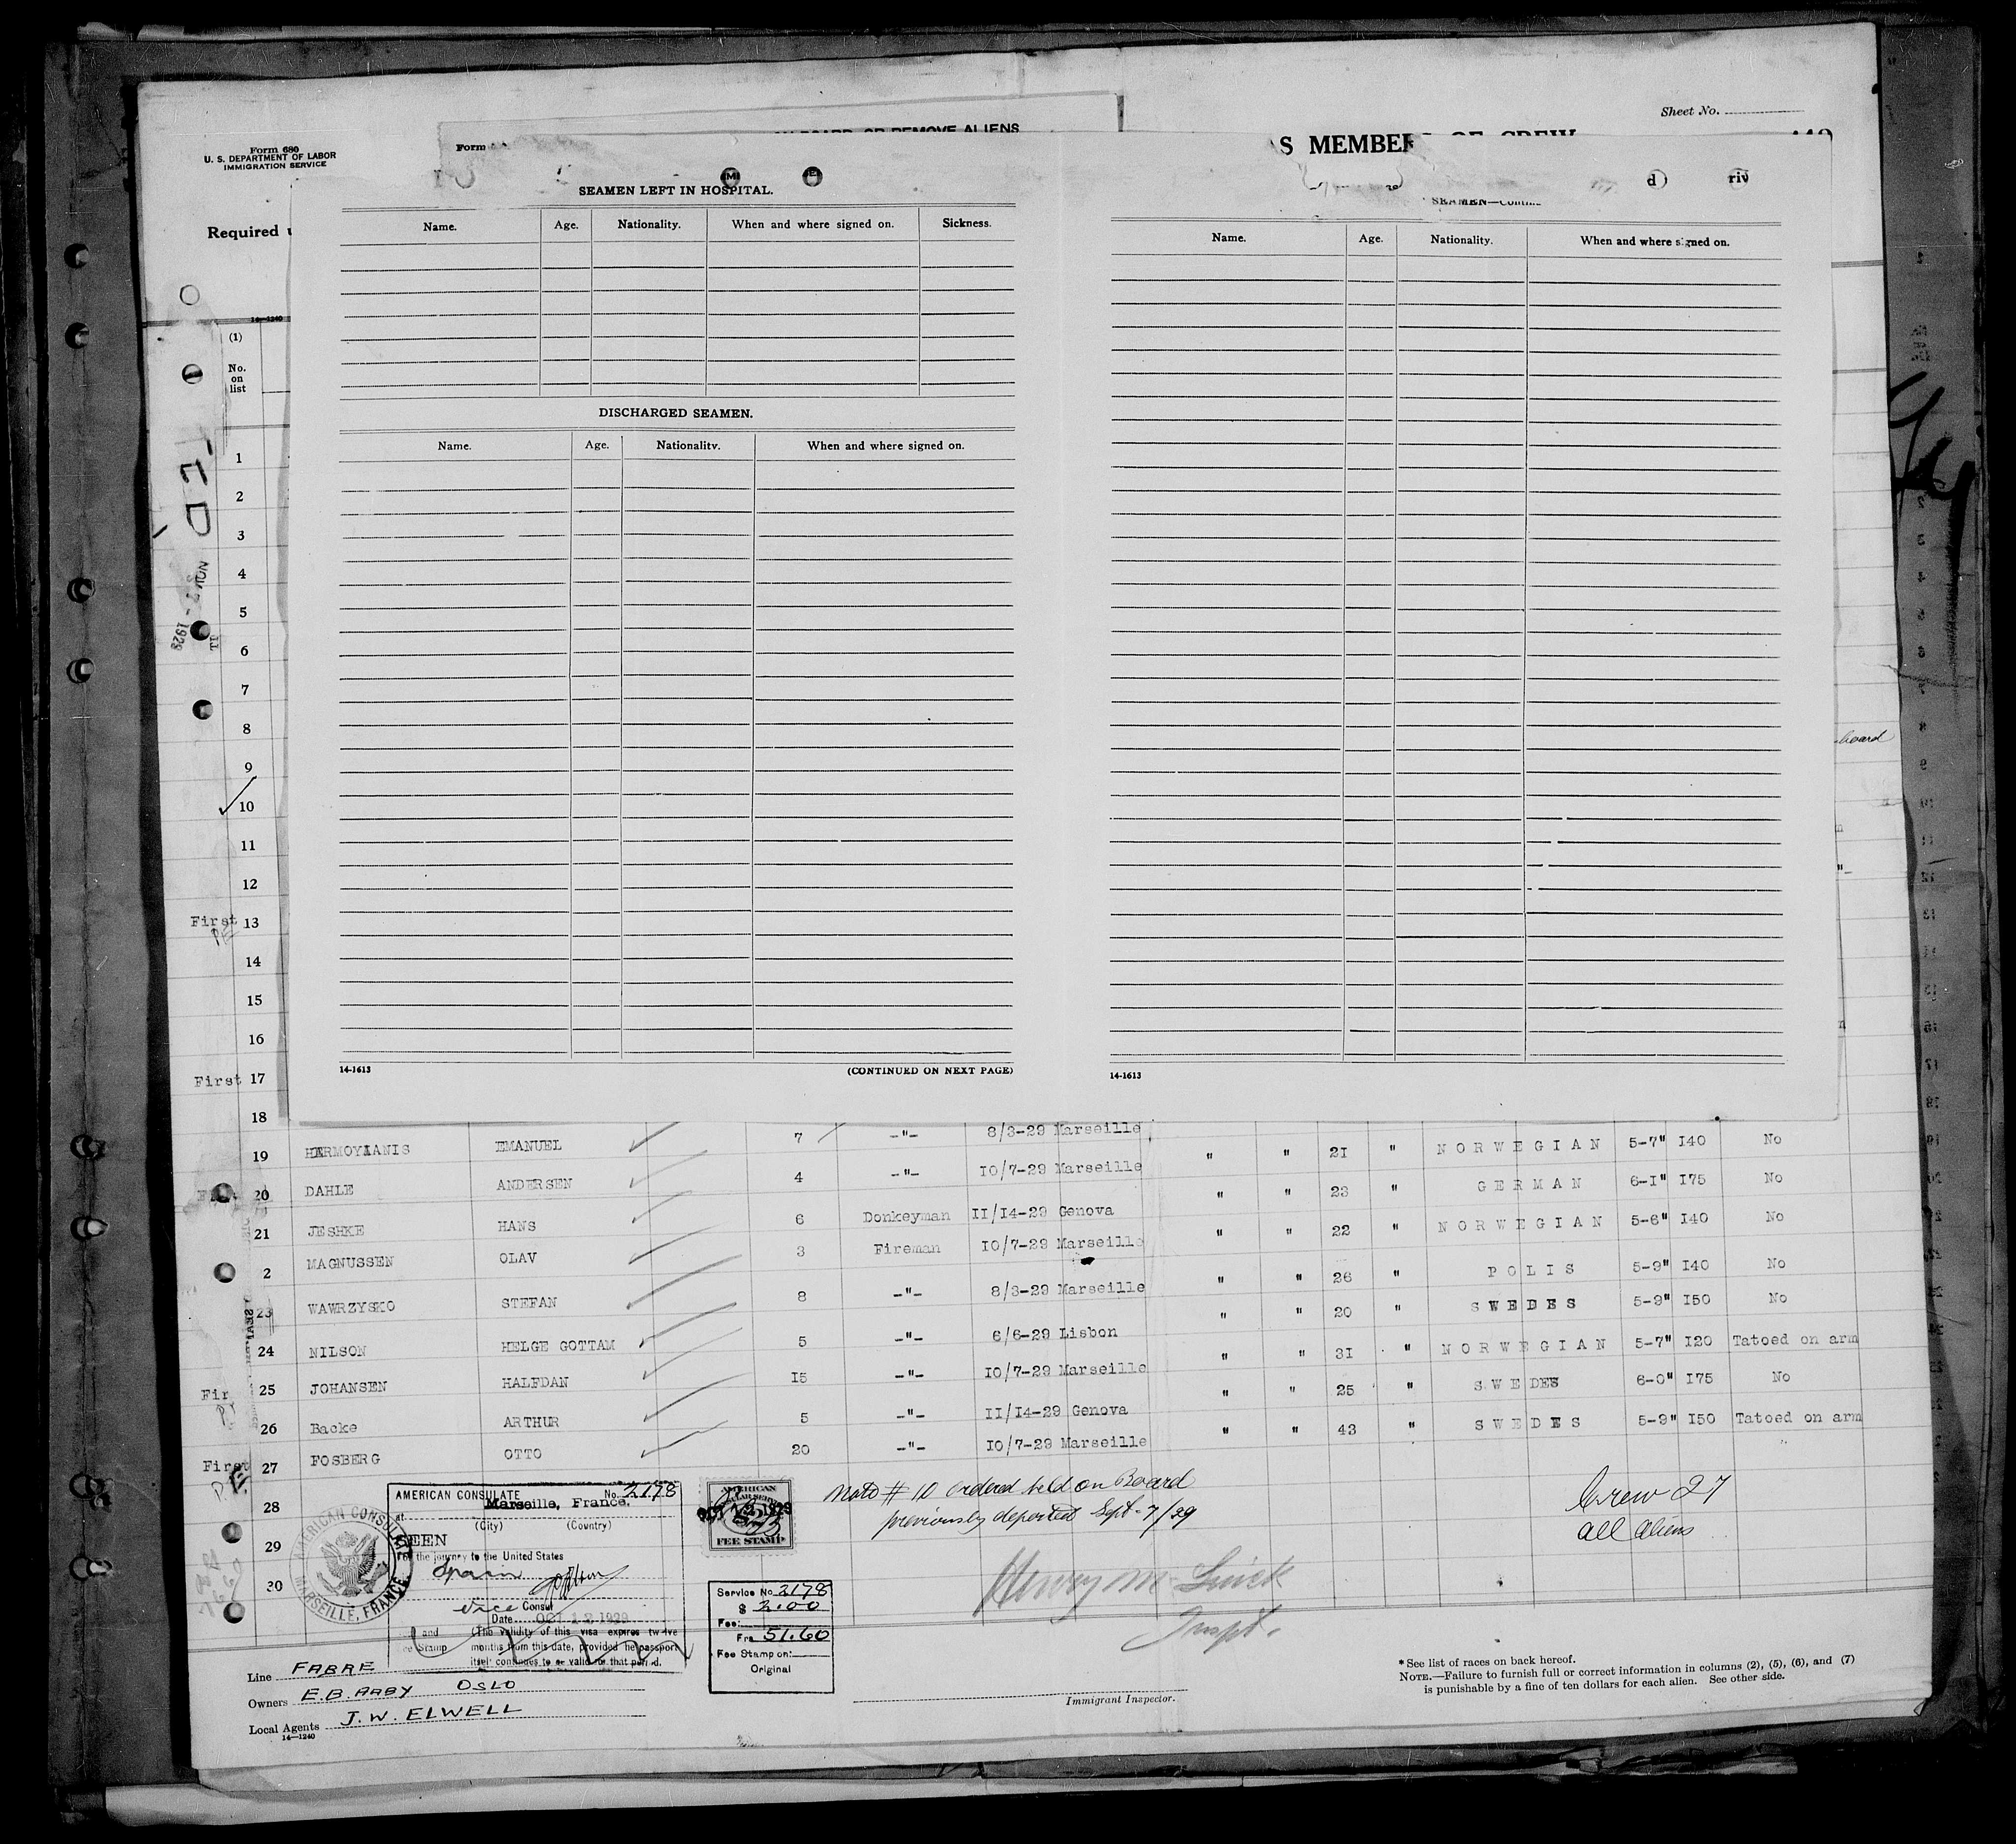 Sheet No.
Form 680
U. S. DEPARTMENT OF LABOR
IMMIGRATION SERVICE
OR REMOVE ALIENS
S MEMBERS OF CREW
Form
Required
SEAMEN LEFT IN HOSPITAL.
Name. Age. Nationality. When and where signed on. Sickness.
DISCHARGED SEAMEN.
Name. Age. Nationality. When and where signed on.
14-1613 (CONTINUED ON NEXT PAGE)
SEAMEN—Contin
Name. Age. Nationality. When and where signed on.
14-1613
14—1240
(1)
No.
on
list
1
2
3
4
5
6
7
8
board
9
10
11
12
First 13
14
15
16
First 17
18
19 HERMOYIANIS EMANUEL 7 -"- 8/3-29 Marseille " " 21 " NORWEGIAN 5-7" 140 No
20 DAHLE ANDERSEN 4 -"- 10/7-29 Marseille " " 23 " GERMAN 6-1" 175 No
21 JESHKE HANS 6 Donkeyman 11/14-29 Genova " " 22 " NORWEGIAN 5-6" 140 No
2 MAGNUSSEN OLAV 3 Fireman 10/7-29 Marseille " " 26 " POLIS 5-9" 140 No
23 WAWRZYSKO STEFAN 8 -"- 8/3-29 Marseille " " 20 " SWEDES 5-9" 150 No
24 NILSON HELGE GOTTAM 5 -"- 6/6-29 Lisbon " " 31 " NORWEGIAN 5-7" 120 Tatoed on arm
25 JOHANSEN HALFDAN 15 -"- 10/7-29 Marseille " " 25 " SWEDES 6-0" 175 No
26 Backe ARTHUR 5 -"- 11/14-29 Genova " " 43 " SWEDES 5-9" 150 Tatoed on arm
First 27 FOSBERG OTTO 20 -"- 10/7-29 Marseille
28
29
30
AMERICAN CONSULATE No. 2178
at Marseille, France.
(City) (Country)
SEEN
For the journey to the United States
Spain
Vice Consul
Date OCT 12 1929
(The validity of this visa expires twelve
months from this date, provided the passport
itself continues to be valid for that period.
AMERICAN CONSULATE
MARSEILLE, FRANCE.
AMERICAN
CONSULAR SERVICE
OCT 12 1929
FEE STAMP
Service No. 2178
$ 2.00
Fee:
Frs 51.60
Fee Stamp on:
Original
Note # 10 ordered held on Board
previously deported Sept-7/29
Crew 27
all aliens
Inspt.
Immigrant Inspector.
Line FABRE
Owners E.B. AABY OSLO
Local Agents J.W. ELWELL
14—1240
*See list of races on back hereof.
NOTE.—Failure to furnish full or correct information in columns (2), (5), (6), and (7)
is punishable by a fine of ten dollars for each alien. See other side.